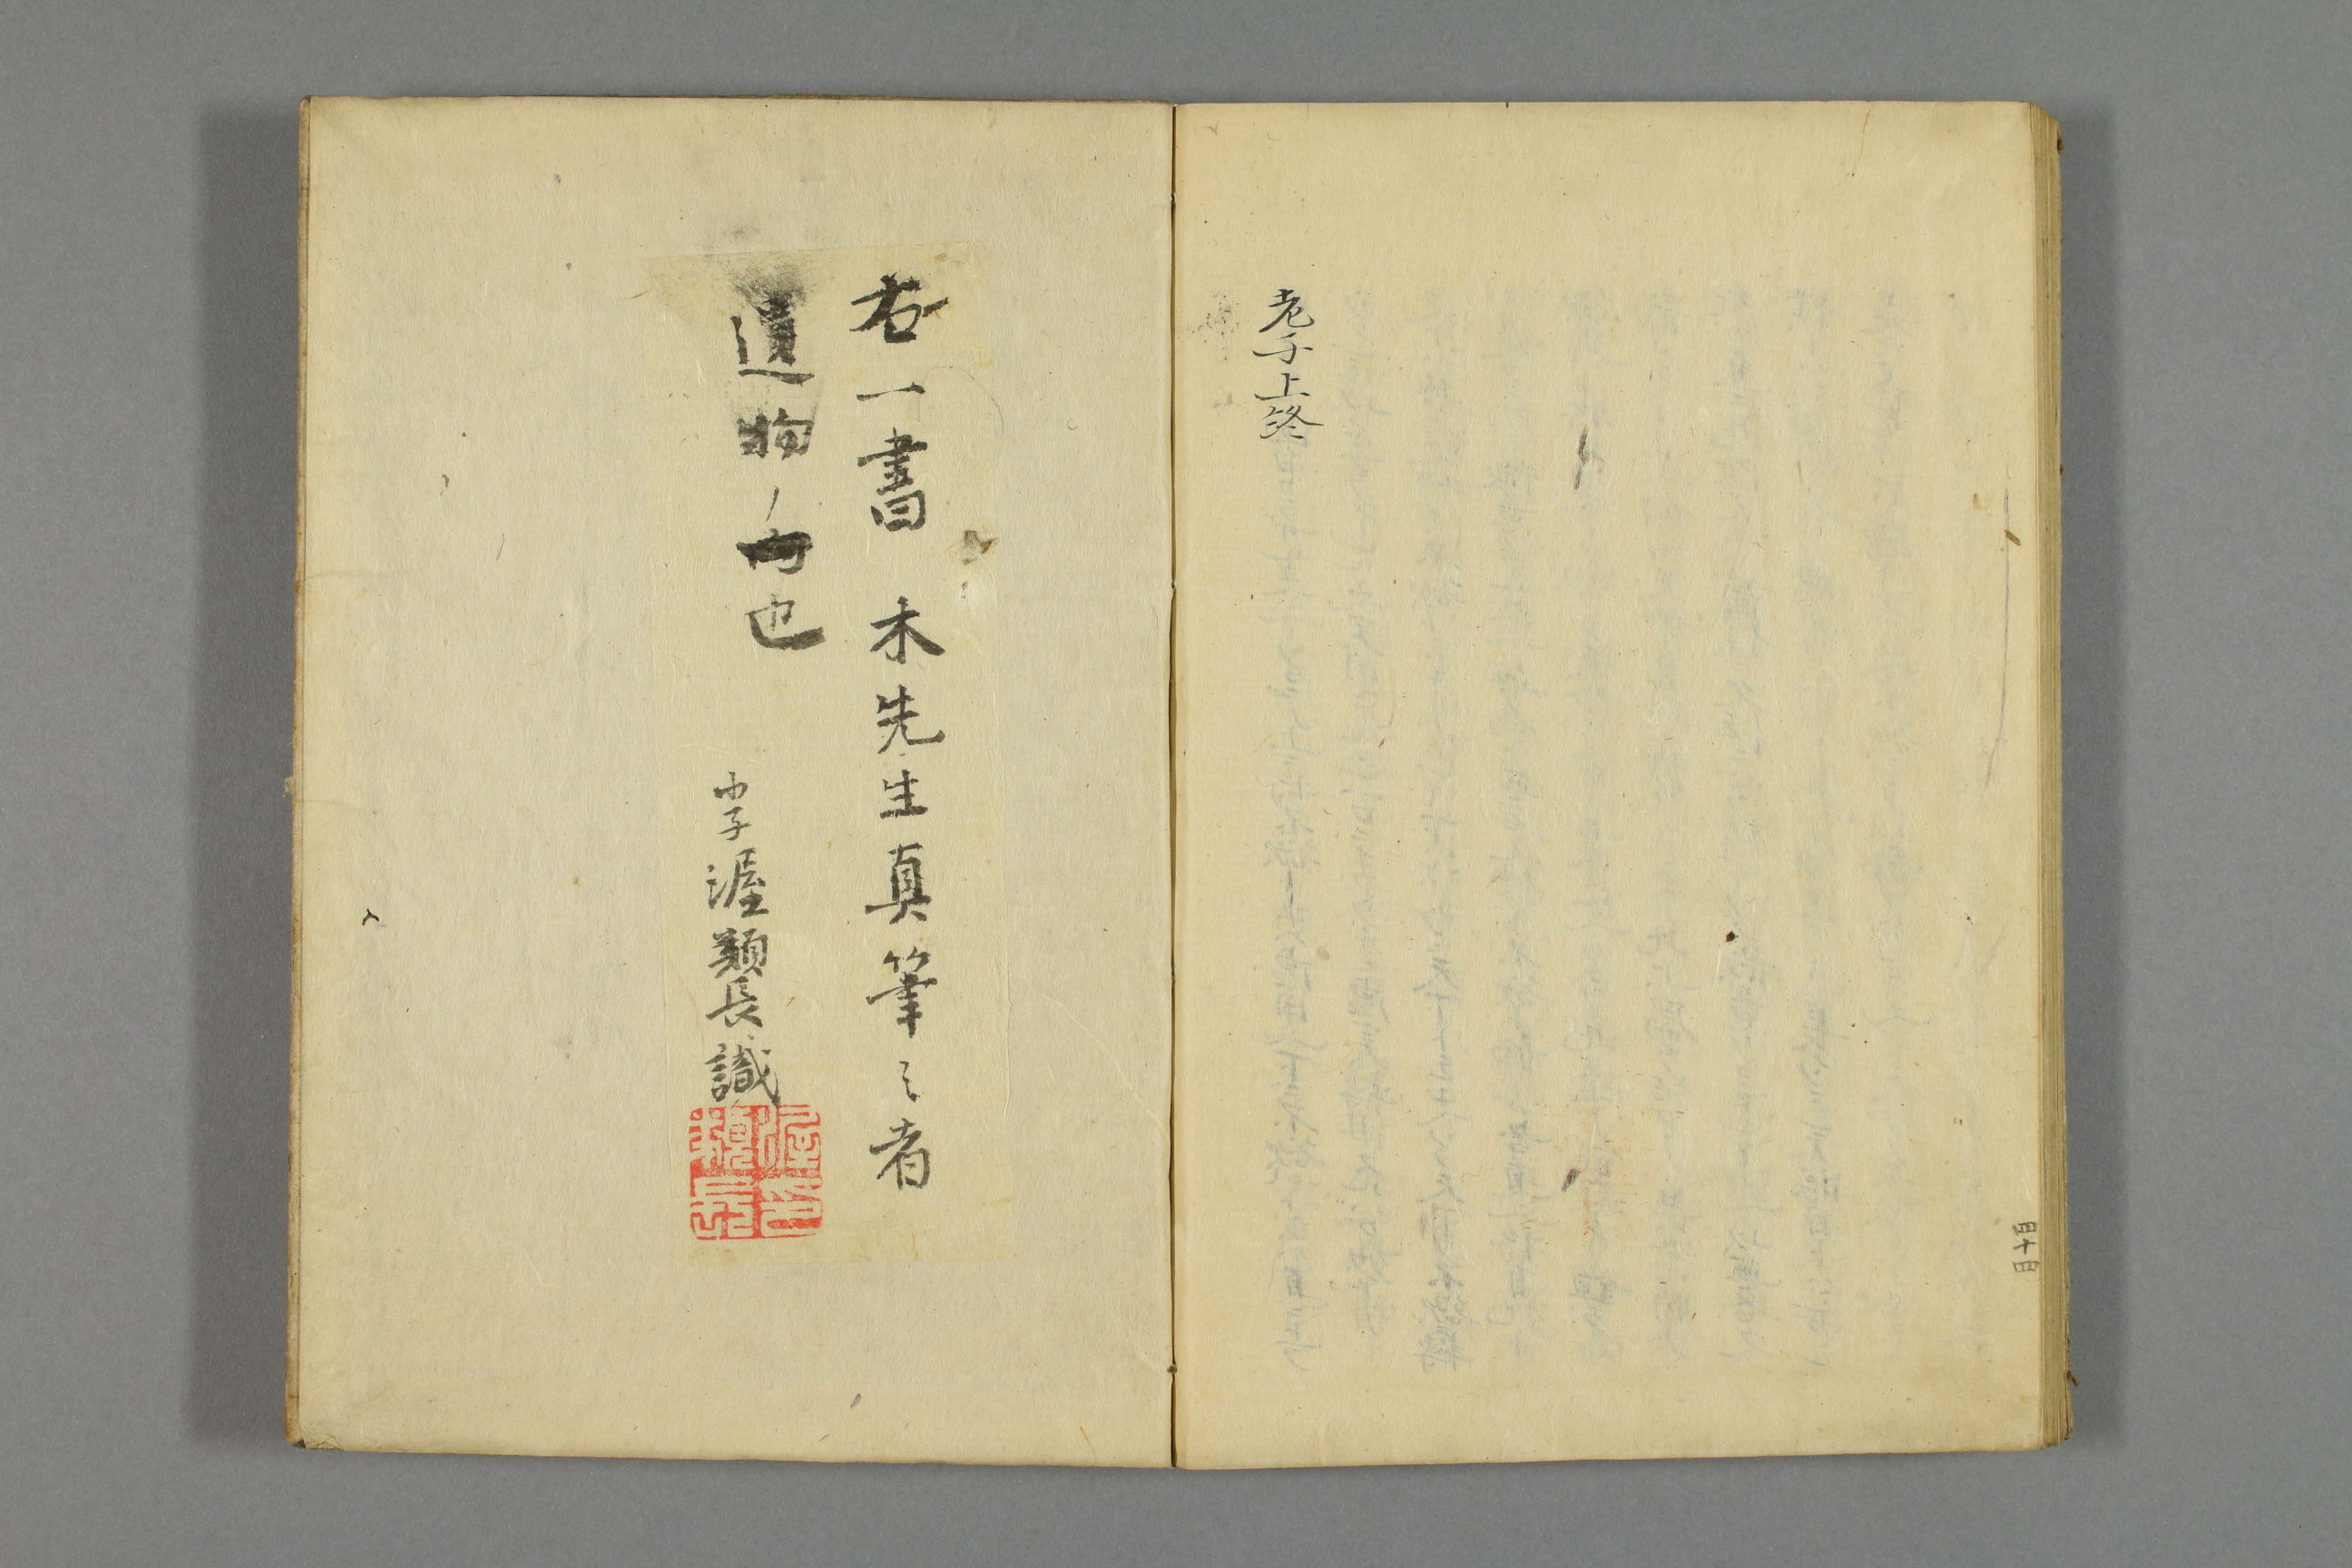 老子上終
四十四
右一書 木先生真筆之者
遺物ノ内也
小子渥類長識